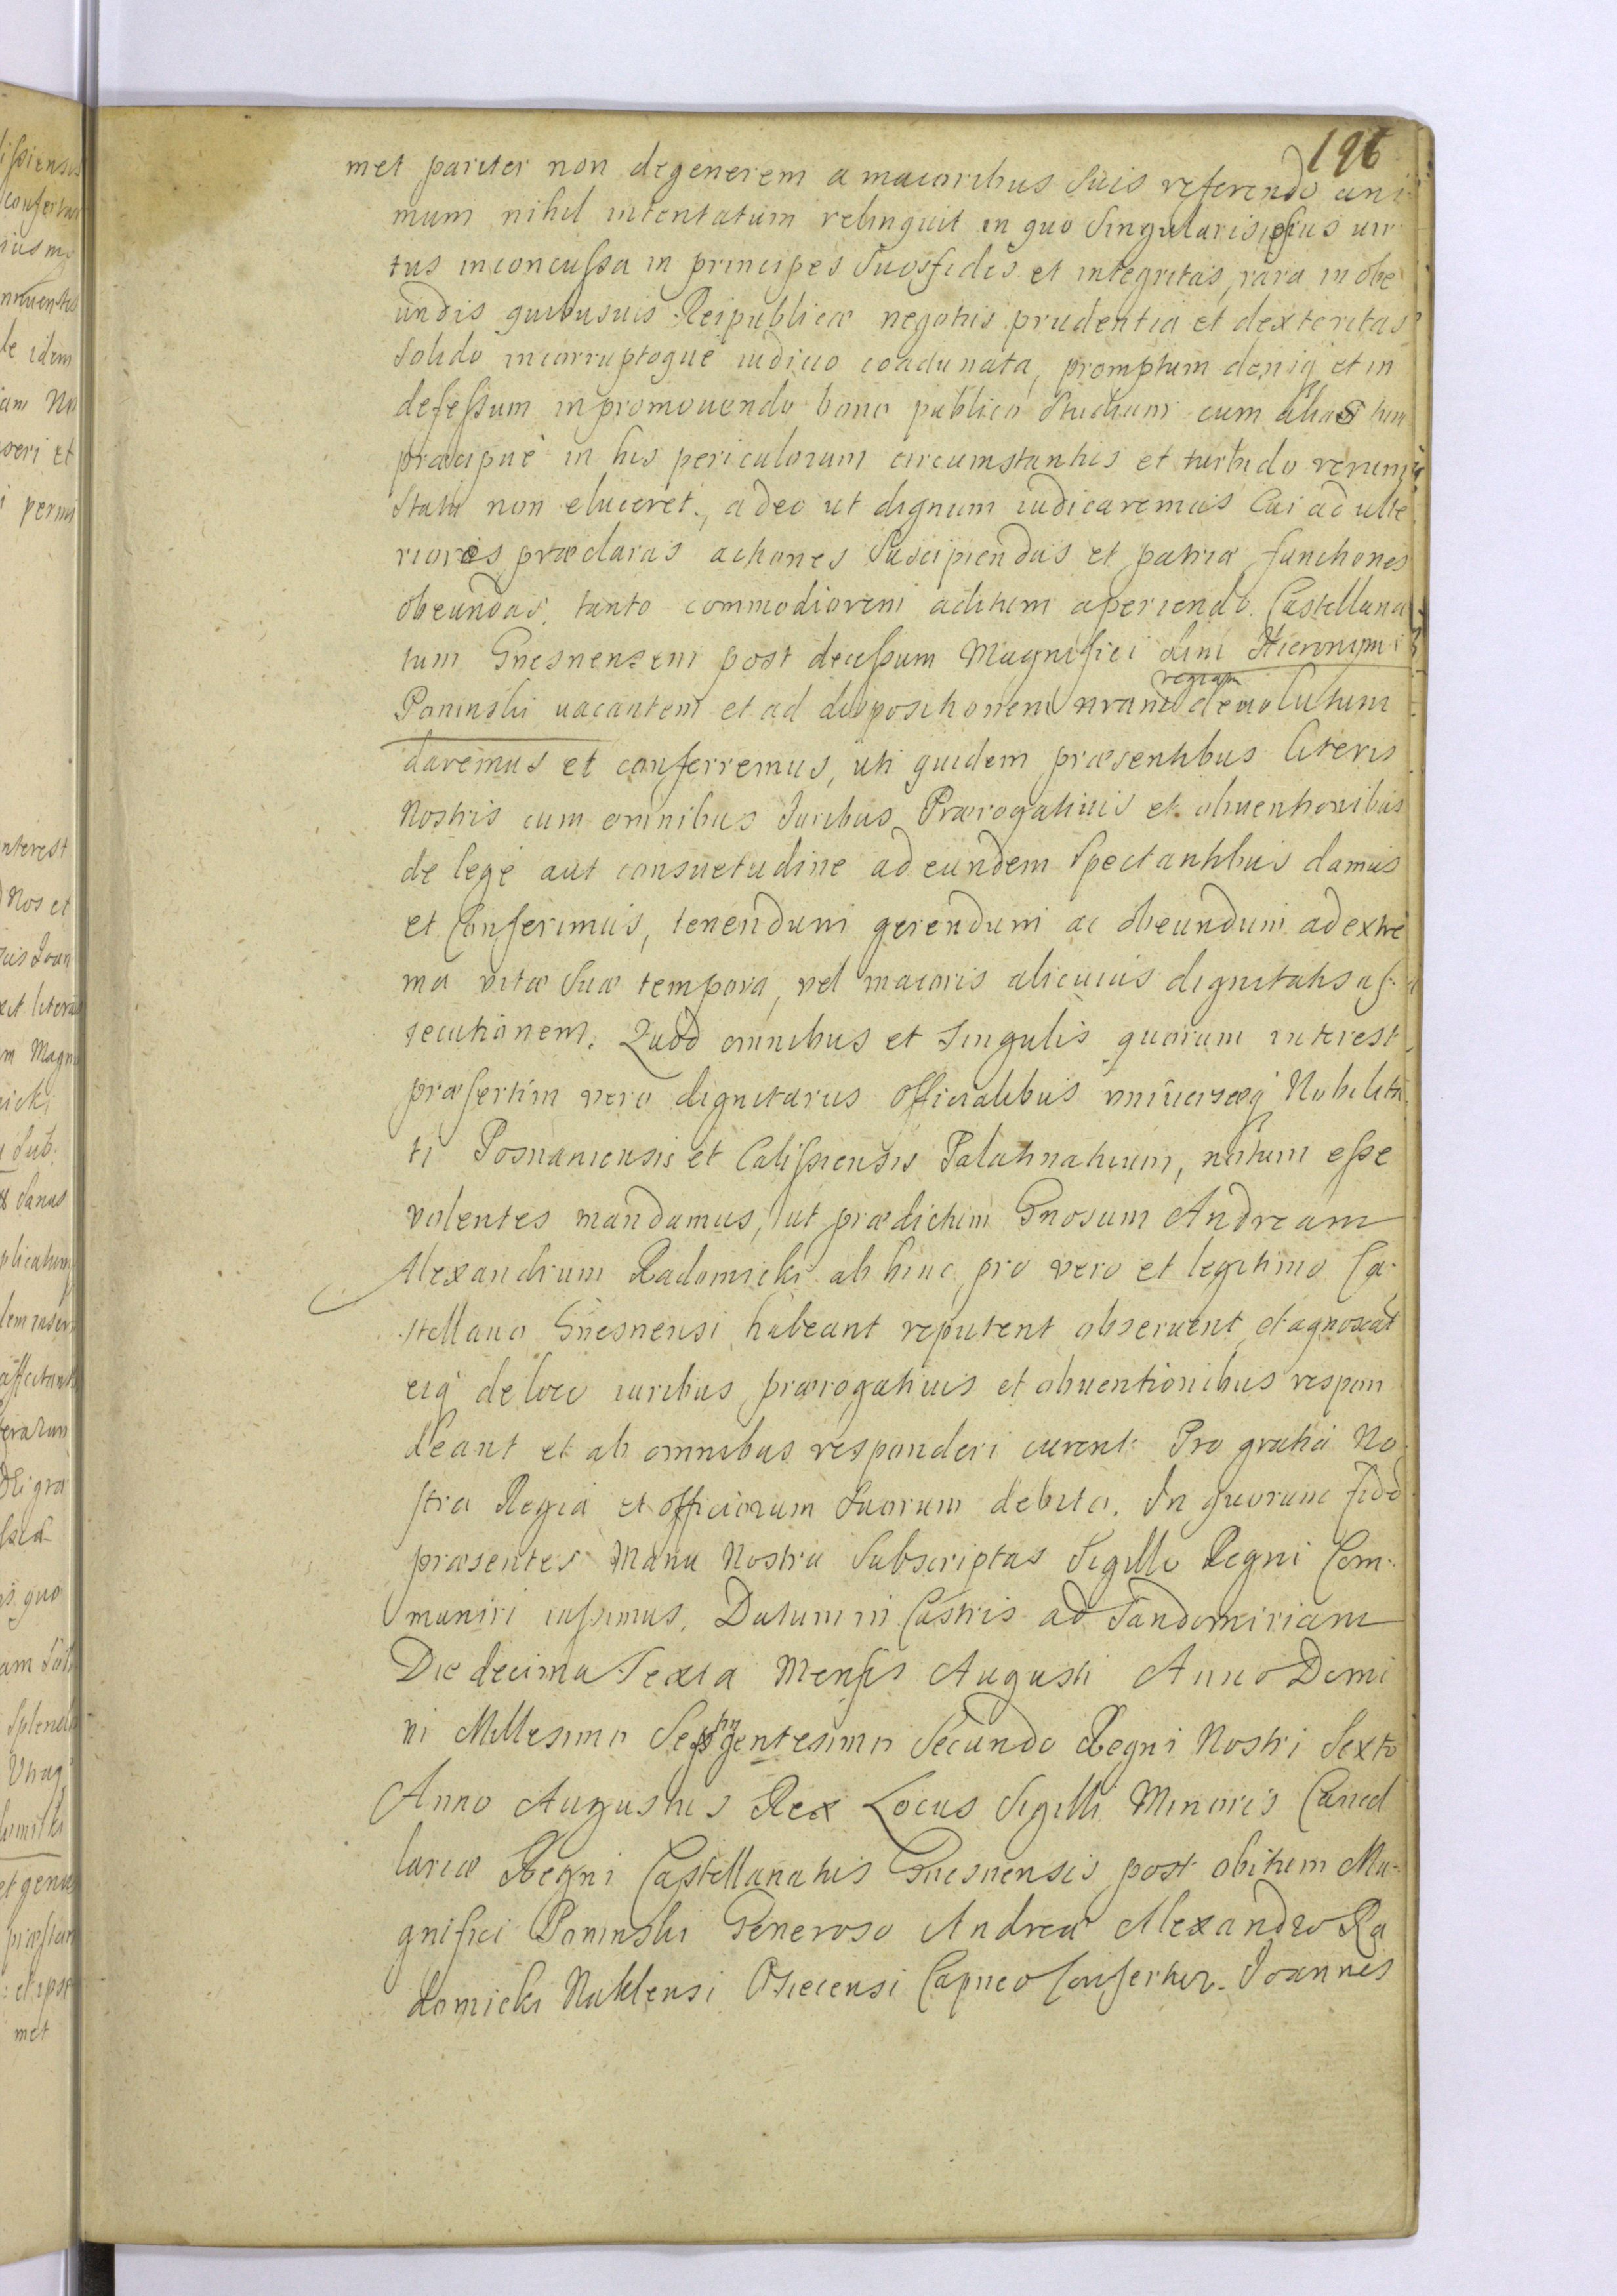 196
met pariter non degenerem a maioribus suis referendo ani
mum nihil intentatum relinquit in quo singularis ejus vir
tus inconcussa in principes suos fides et integritas, rara in obe
undis quibusuis Reipublicæ negotiis prudentia et dexteritas
solido incorruptoque iudicio coadunata, promptum deniq et in
defessum in promouendo bono publico studium cum alias tum
præcipuè in his periculorum circumstantiis et turbido rerum
statu non eluceret, adeo ut dignum iudicaremus Cui ad ulte
riores præclaras actiones suscipiendas et patriæ functiones
obeundas, tanto commodiorem aditum aperiendo Castellana
tum Gnesnensem post decessum Magnifici olim Hieronymi
Poninski uacantem et ad dispositionem nram regiam deuolutum
daremus et conferremus, uti quidem præsentibus literis
Nostris cum omnibus Juribus Prærogatiuis et obuentionibus
de lege aut consuetudine ad eundem spectantibus damus
et Conferimus, tenendum gerendum ac obeundum ad extre
ma vitæ suæ tempora, vel maioris alicuius dignitatis as-
secutionem. Quod omnibus et singulis quorum interest
præsertim vero dignitariis officialibus vniuersæq Nobilita
ti Posnaniensis et Calissiensis Palatinatuum, notum esse
volentes mandamus, ut prædictum Gnosum Andream
Alexandrum Radomicki ab hinc pro vero et legitimo Ca-
stellano Gnesnensi habeant reputent obseruent et agnoscāt
eiq de loco iuribus prærogatiuis et obuentionibus respon
deant et ab omnibus responderi curent Pro gratia No
stra Regia et officiorum suorum debito. In quorum fidē
præsentes Manu Nostra subscriptas Sigillo Regni Com-
muniri iussimus, Datum in Castris ad Sandomiriam
Die decima Sexta Mensis Augusti Anno Domi
ni Millesimo Septingentesimo Secundo Regni Nostri Sexto
Anno Augustus Rex Locus Sigilli Minoris Cancel
lariæ Regni Castellanatus Gnesnensis post obitum Ma-
gnifici Poninski Generoso Andreæ Alexandro Ra
domicki Naklensi Osiecensi Capneo Confertur. Joannes